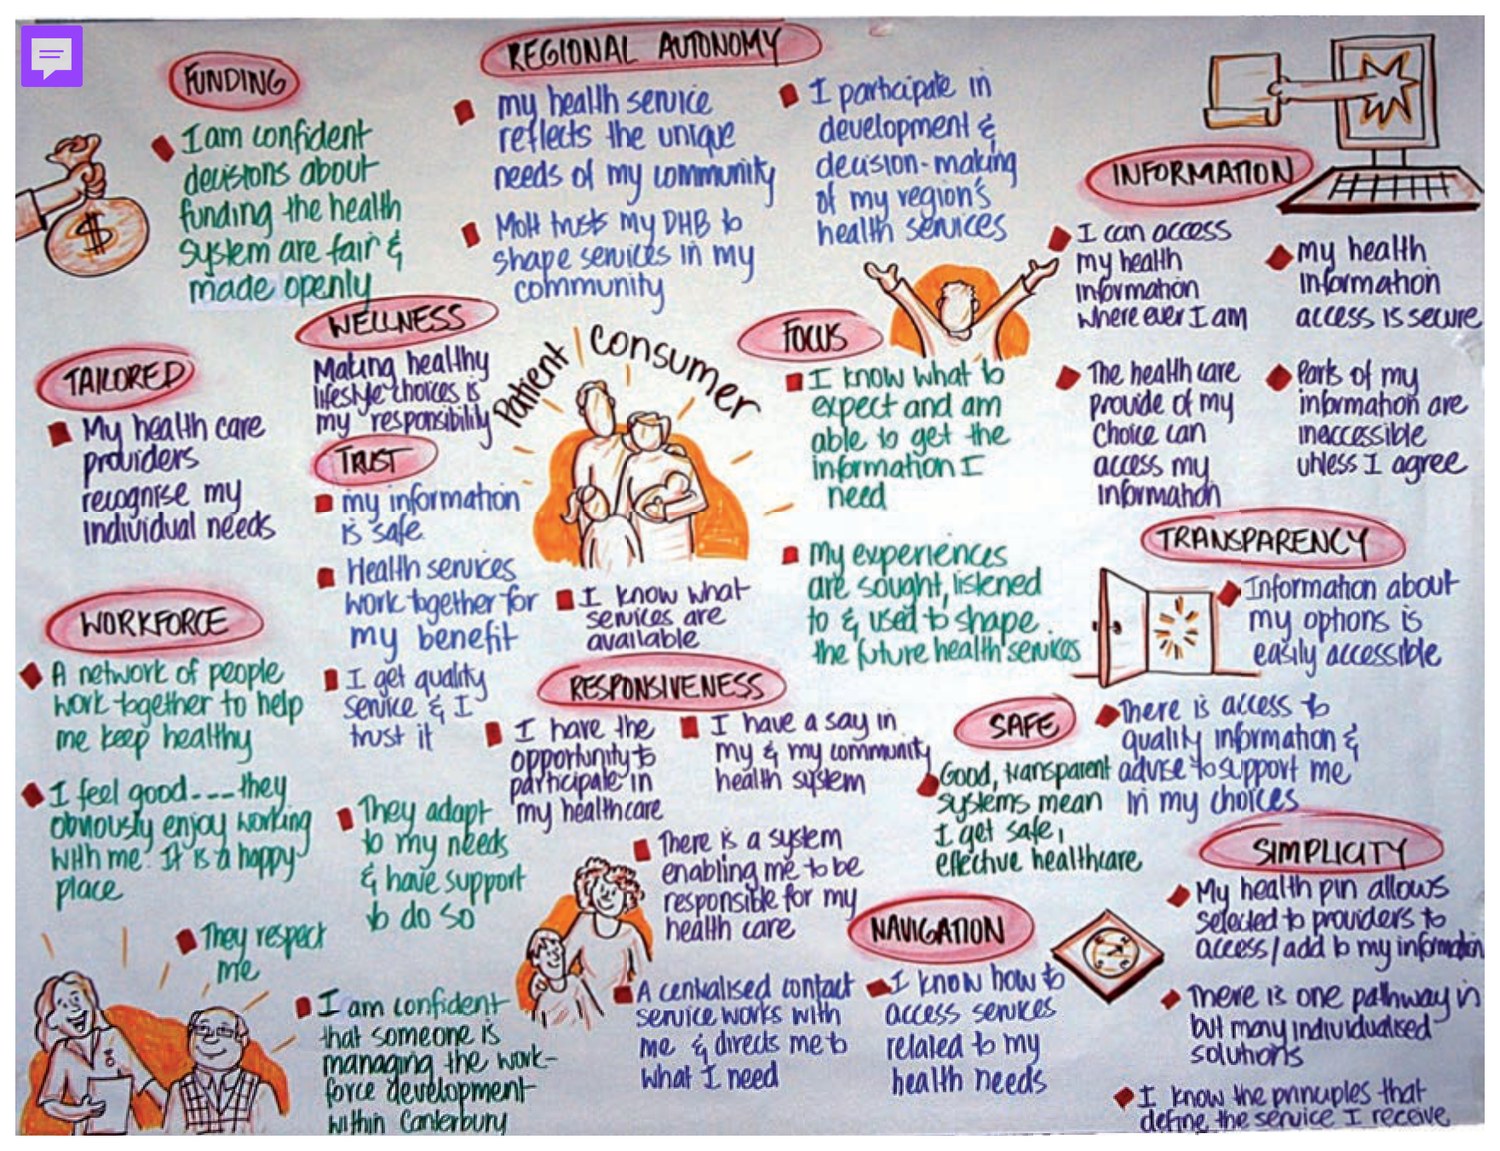 FUNDING
I am confident
decisions about
funding the health
system are fair &
made openly
REGIONAL AUTONOMY
my health service
reflects the unique
needs of my community
MoH trusts my DHB to
shape services in my
community
I participate in
development &
decision-making
of my region's
health services
INFORMATION
I can access
my health
information
where ever I am
my health
information
access is secure
The health care
provide of my
choice can
access my
information
Parts of my
information are
inaccessible
unless I agree
TAILORED
My health care
providers
recognise my
individual needs
WELLNESS
Making healthy
lifestyle choices is
my responsibility
TRUST
my information
is safe
Health services
work together for
my benefit
I get quality
service & I
trust it
Patient | Consumer
I know what
services are
available
FOCUS
I know what to
expect and am
able to get the
information I
need
My experiences
are sought, listened
to & used to shape
the future health services
TRANSPARENCY
Information about
my options is
easily accessible
There is access to
quality information &
advise to support me
in my choices
WORKFORCE
A network of people
work together to help
me keep healthy
I feel good---they
obviously enjoy working
with me. It is a happy
place
They adapt
to my needs
& have support
to do so
They respect
me
I am confident
that someone is
managing the work-
force development
within Canterbury
RESPONSIVENESS
I have the
opportunity to
participate in
my healthcare
I have a say in
my & my community
health system
There is a system
enabling me to be
responsible for my
health care
A centralised contact
service works with
me & directs me to
what I need
SAFE
Good, transparent
systems mean
I get safe,
effective healthcare
NAVIGATION
I know how to
access services
related to my
health needs
SIMPLICITY
My health pin allows
selected to providers to
access/add to my information
There is one pathway in
but many individualised
solutions
I know the principles that
define the service I receive